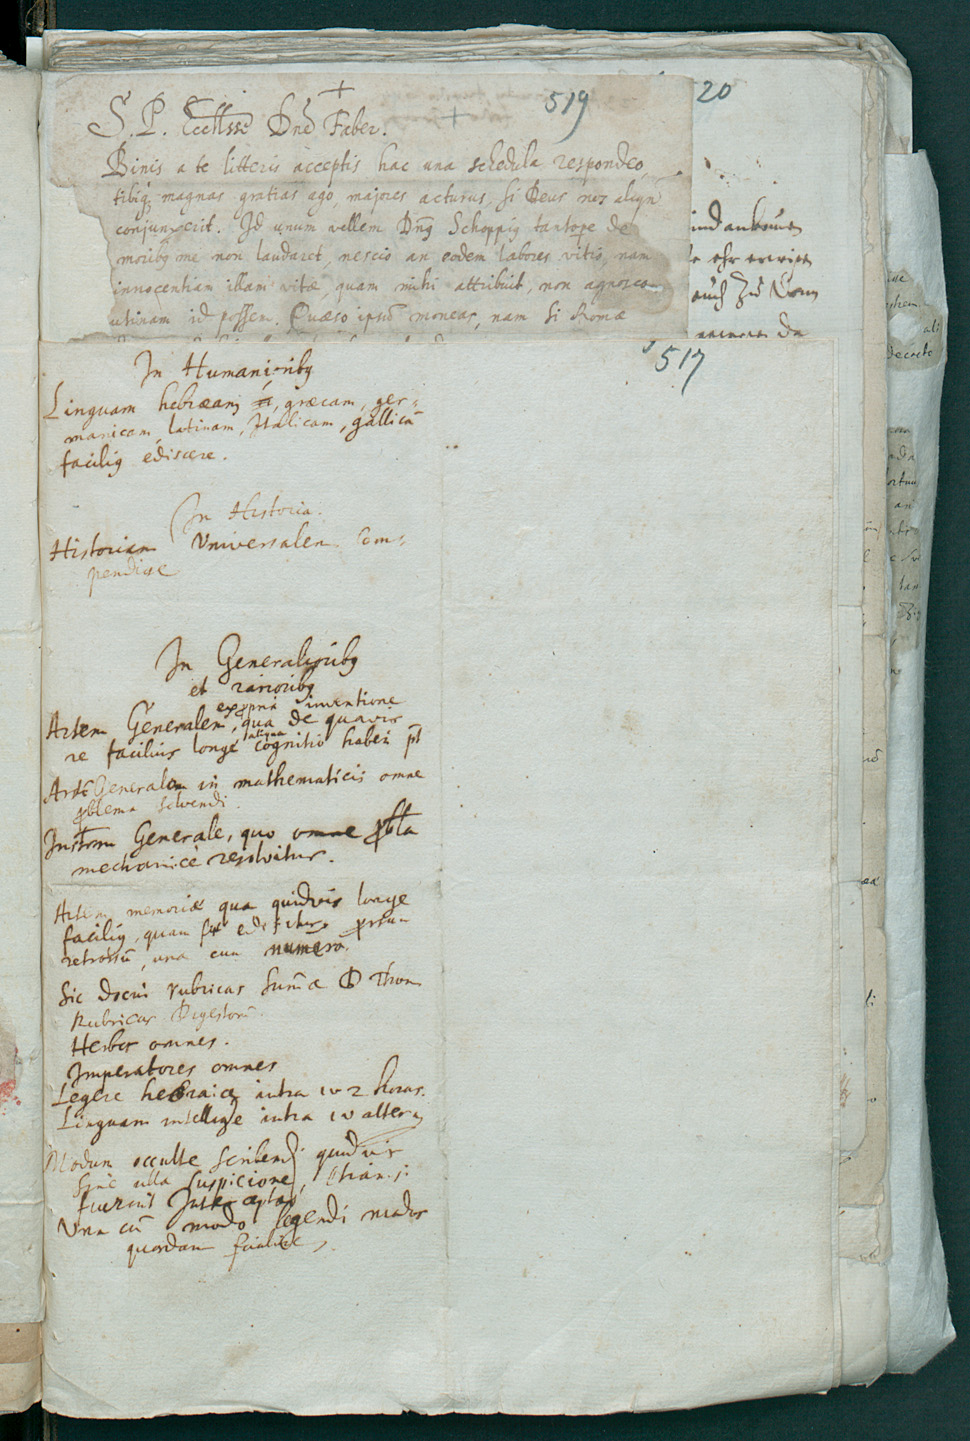 519
20
S. P. Excellsse Dne Faber.
Binis a te litteris acceptis hac una schedula respondeo,
tibiq magnas gratias ago, majores acturus, si Deus nos aliqn
conjunxerit. Id unum vellem Dng Schoppig tantope de
moribg me non laudaret, nescio an eodem labores vitio, nam
innocentiam illam vitæ, quam mihi attribuit, non agnosco
utinam id possem. Quæso ipsū moneas, nam si Romæ
517
In Humaniribg
Linguam hebræam, græcam, ger-
manicam, latinam, Italicam, gallicā
facilig ediscere.
In Historia.
Historiam Universalem Com-
pendiose
In Generalioribg
et rarioribg
ex ppria inventione
Artem Generalem, qua de quavis
re facilius longe cognitio haberi pt
Arte Generalem in mathematicis omne
pblema solvendi.
Instrm Generale, quo omne pbla
mechanicè resolvitur.
Artem memoriæ qua quidvis longe
facilig, quam
retrorsū, una cum numero.
Sic docui rubricas Sum̄æ D Thom
Rubricas Digestorū.
Herbas omnes.
Imperatores omnes
Legere hebraice intra 1 v 2 horas.
Linguam intellige intra
Modum occulte scribendi quidvis
Sine ulla suspicione, etiam si
fuerint Interceptae
Una cū modo legendi modos
quosdam